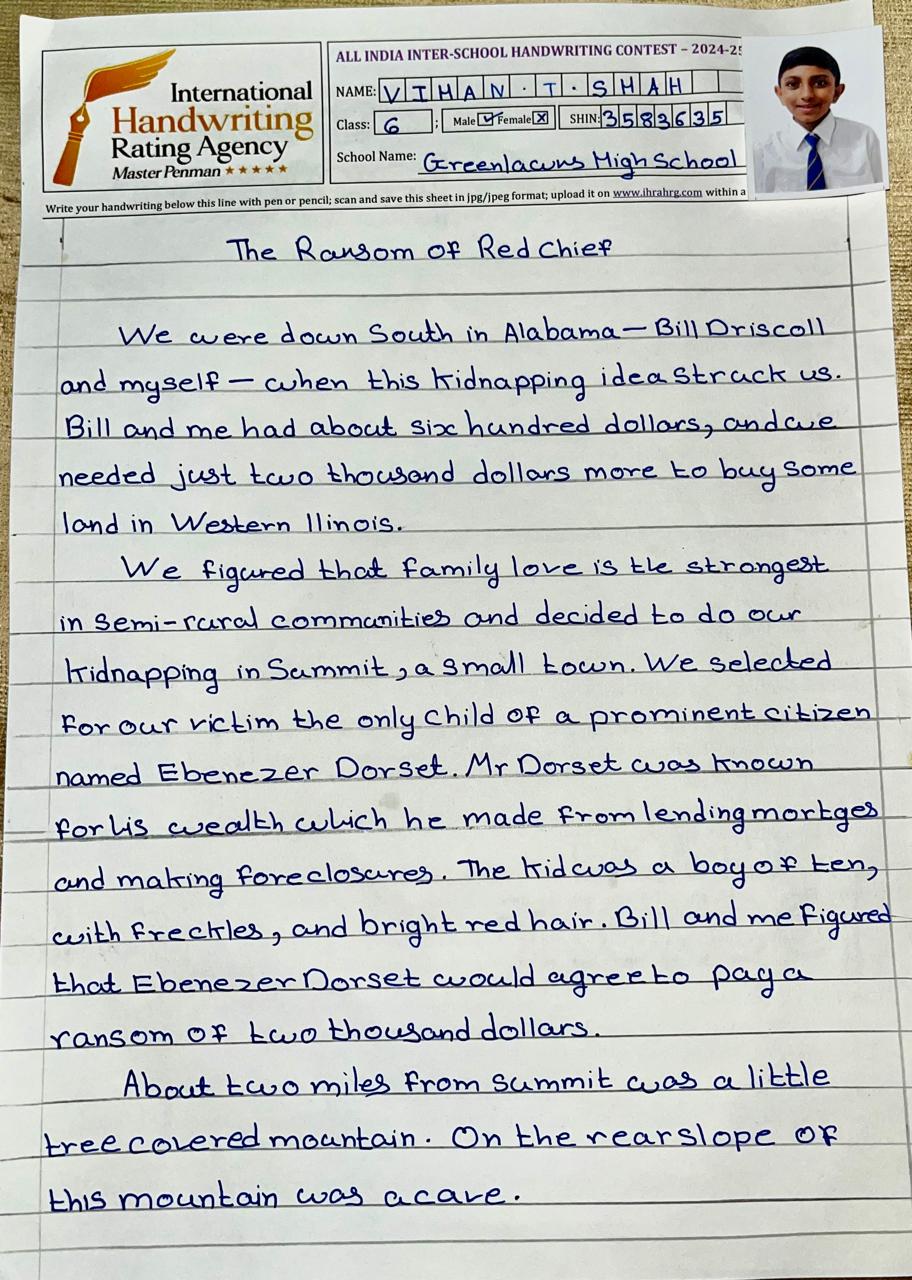 International
Handwriting
Rating Agency
Master Penman ★★★★★
ALL INDIA INTER-SCHOOL HANDWRITING CONTEST – 2024-25
NAME: VIHAN · T · SHAH
Class: 6 ; Male ☑ Female ☒ SHIN: 3583635
School Name: Greenlawns High School
Write your handwriting below this line with pen or pencil; scan and save this sheet in jpg/jpeg format; upload it on www.ihrahrg.com within a
The Ransom of Red Chief
We were down South in Alabama — Bill Driscoll
and myself — when this kidnapping idea struck us.
Bill and me had about six hundred dollars, and we
needed just two thousand dollars more to buy some
land in Western Ilinois.
We figured that family love is the strongest
in semi-rural communities and decided to do our
kidnapping in Summit, a small town. We selected
for our victim the only child of a prominent citizen
named Ebenezer Dorset. Mr Dorset was known
for his wealth which he made from lending mortges
and making foreclosures. The kid was a boy of ten,
with freckles, and bright red hair. Bill and me figured
that Ebenezer Dorset would agree to pay a
ransom of two thousand dollars.
About two miles from summit was a little
tree covered mountain. On the rear slope of
this mountain was a cave.